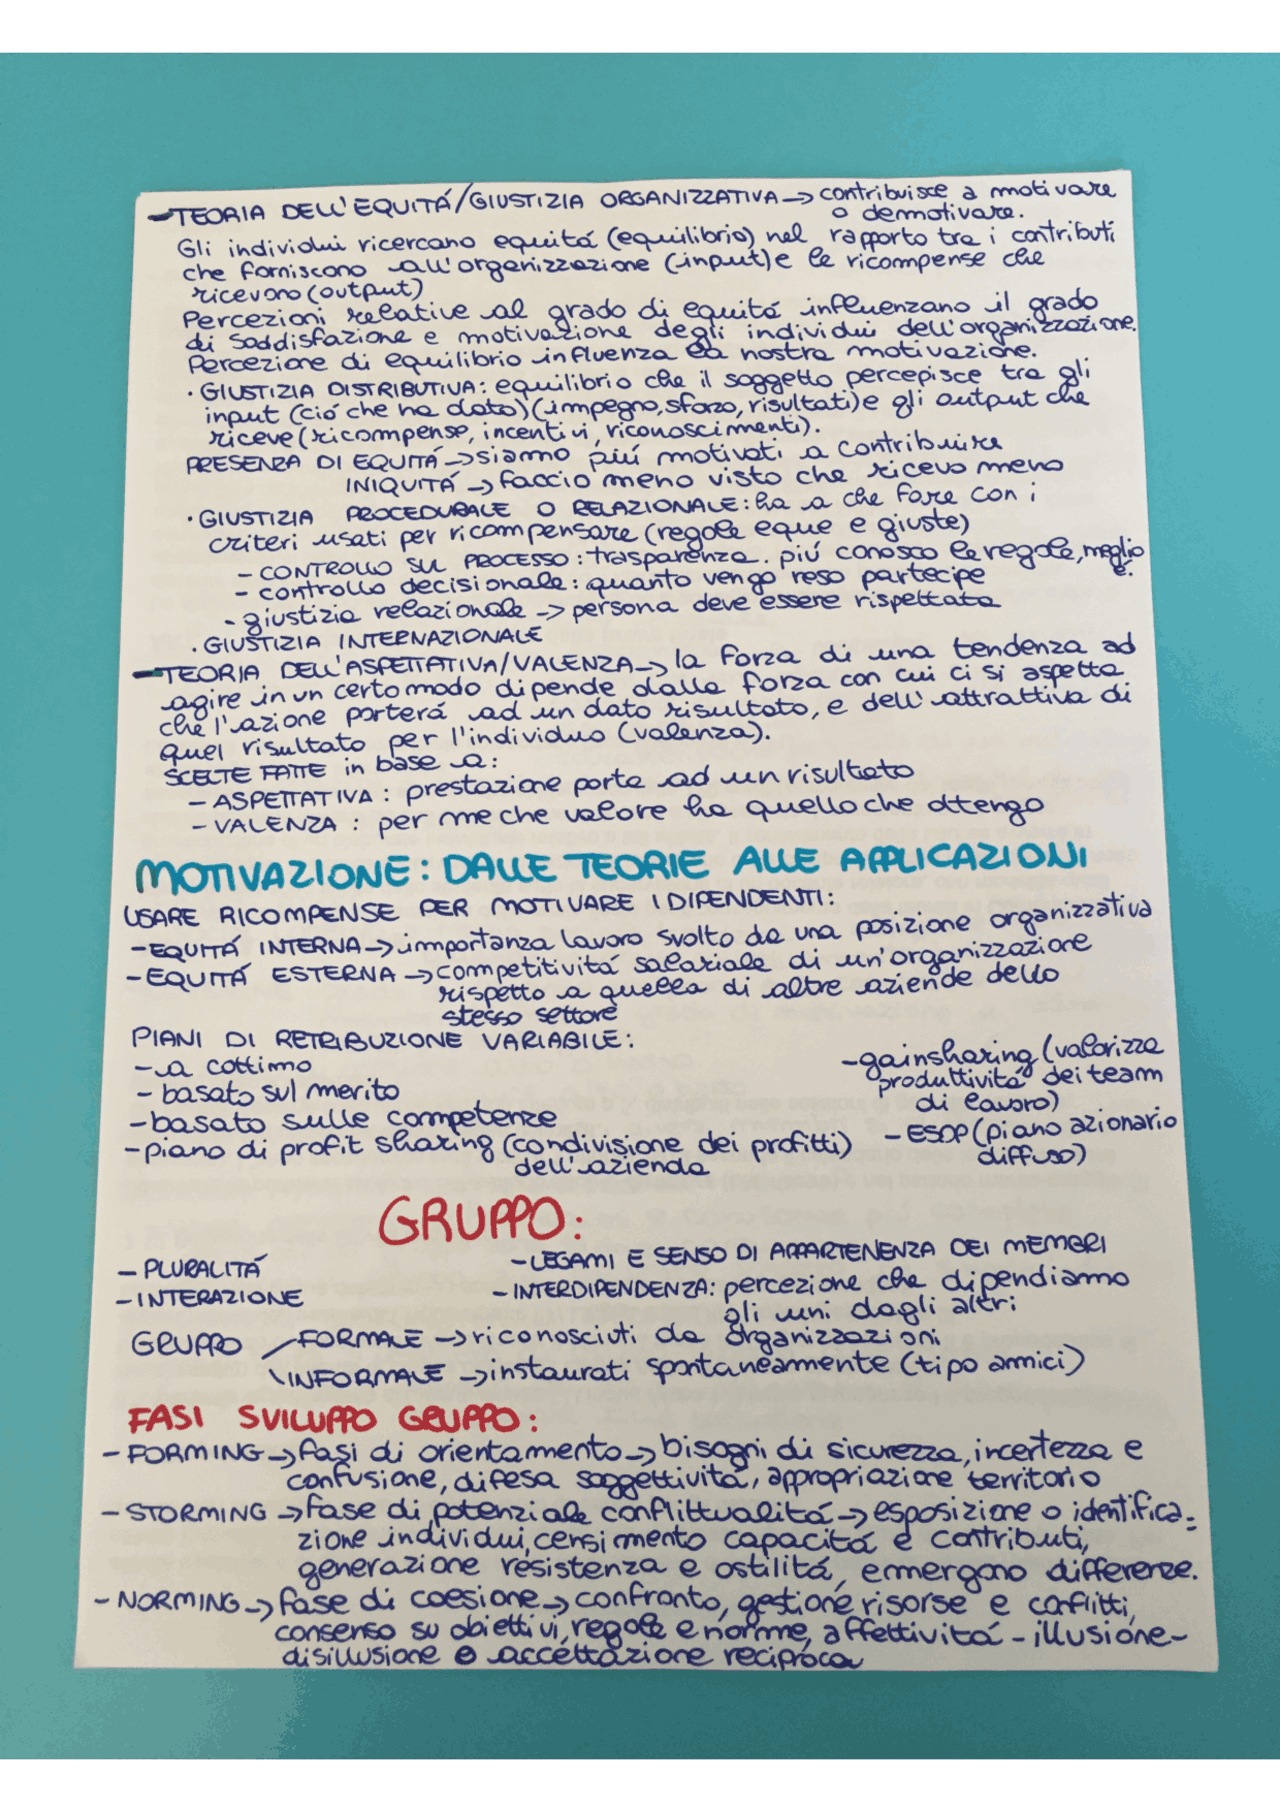 -TEORIA DELL'EQUITÁ/GIUSTIZIA ORGANIZZATIVA -> contribuisce a motivare
o demotivare.
Gli individui ricercano equitá (equilibrio) nel rapporto tra i contributi
che forniscono all'organizzazione (input) e le ricompense che
ricevono (output)
Percezioni relative al grado di equitá influenzano il grado
di soddisfazione e motivazione degli individui dell'organizzazione.
Percezione di equilibrio influenza la nostra motivazione.
· GIUSTIZIA DISTRIBUTIVA: equilibrio che il soggetto percepisce tra gli
input (ció che ha dato) (impegno, sforzo, risultati) e gli output che
riceve (ricompense, incentivi, riconoscimenti).
PRESENZA DI EQUITÁ -> siamo piú motivati a contribuire
INIQUITÁ -> faccio meno visto che ricevo meno
· GIUSTIZIA PROCEDURALE O RELAZIONALE: ha a che fare con i
criteri usati per ricompensare (regole eque e giuste)
- CONTROLLO SUL PROCESSO: trasparenza. piú conosco le regole, meglio
é.
- controllo decisionale: quanto vengo reso partecipe
- giustizia relazionale -> persona deve essere rispettata
· GIUSTIZIA INTERNAZIONALE
-TEORIA DELL'ASPETTATIVA/VALENZA -> la forza di una tendenza ad
agire in un certo modo dipende dalla forza con cui ci si aspetta
che l'azione porterá ad un dato risultato, e dell'attrattiva di
quel risultato per l'individuo (valenza).
SCELTE FATTE in base a:
- ASPETTATIVA: prestazione porta ad un risultato
- VALENZA: per me che valore ha quello che ottengo
MOTIVAZIONE: DALLE TEORIE ALLE APPLICAZIONI
USARE RICOMPENSE PER MOTIVARE I DIPENDENTI:
- EQUITÁ INTERNA -> importanza lavoro svolto da una posizione organizzativa
- EQUITÁ ESTERNA -> competitivitá salariale di un'organizzazione
rispetto a quella di altre aziende dello
stesso settore
PIANI DI RETRIBUZIONE VARIABILE:
- a cottimo
- basato sul merito
- basato sulle competenze
- piano di profit sharing (condivisione dei profitti)
dell'azienda
- gainsharing (valorizza
produttivitá dei team
di lavoro)
- ESOP (piano azionario
diffuso)
GRUPPO:
- PLURALITÁ
- INTERAZIONE
- LEGAMI E SENSO DI APPARTENENZA DEI MEMBRI
- INTERDIPENDENZA: percezione che dipendiamo
gli uni dagli altri
GRUPPO / FORMALE -> riconosciuti da organizzazioni
\ INFORMALE -> instaurati spontaneamente (tipo amici)
FASI SVILUPPO GRUPPO:
- FORMING -> fasi di orientamento -> bisogni di sicurezza, incertezza e
confusione, difesa soggettivitá, appropriazione territorio
- STORMING -> fase di potenziale conflittualitá -> esposizione o identifica-
zione individui, censimento capacitá e contributi,
generazione resistenza e ostilitá, emergono differenze.
- NORMING -> fase di coesione -> confronto, gestione risorse e conflitti,
consenso su obiettivi, regole e norme, affettivitá - illusione-
disillusione e accettazione reciproca